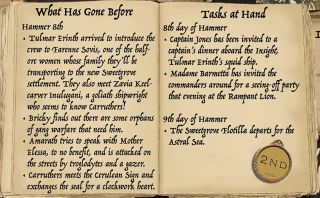 What Has Gone Before
Hammer 8th
• Tulmar Erinth arrived to introduce the
crew to Farenne Sovis, one of the half-
orc women whose family they'll be
transporting to the new Sweetgrove
settlement. They also meet Zavia Keel-
carver Inulugani, a goliath shipwright
who seems to know Carruthers!
• Bricky finds out there are some orphans
of gang warfare that need him.
• Amarath tries to speak with Mother
Elessa, to no benefit, and is attacked on
the streets by troglodytes and a gazer.
• Carruthers meets the Cerulean Sign and
exchanges the seal for a clockwork heart.
Tasks at Hand
8th day of Hammer
• Captain Jones has been invited to a
captain's dinner aboard the Insight,
Tulmar Erinth's squid ship.
• Madame Barmetta has invited the
commanders around for a seeing-off party
that evening at the Rampant Lion.
9th day of Hammer
• The Sweetgrove Flotilla departs for the
Astral Sea.
2ND